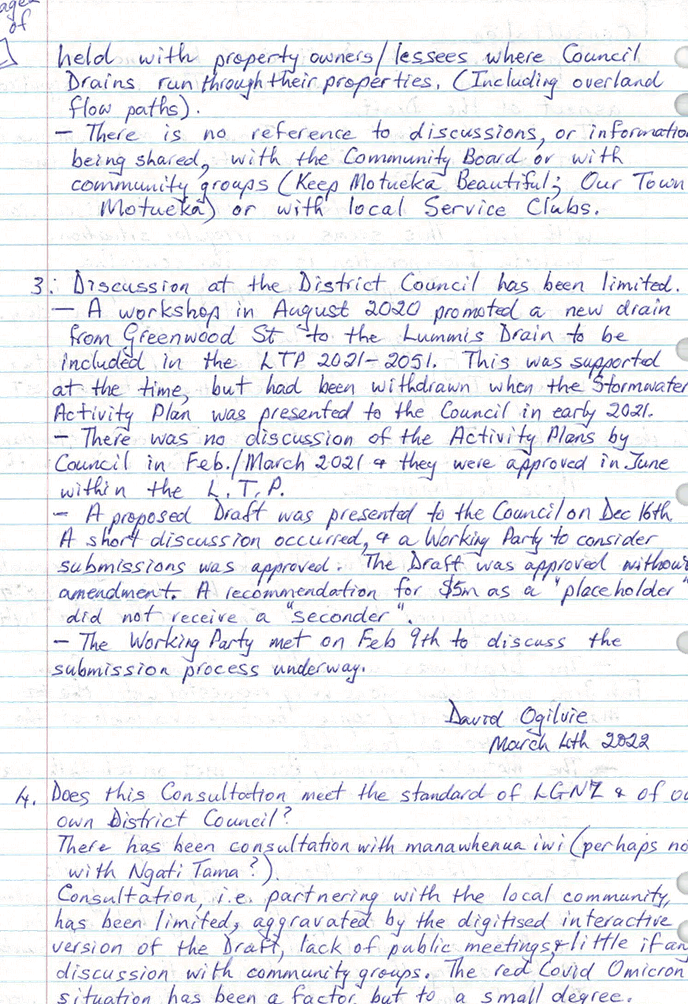 of
held with property owners/lessees where Council
Drains run through their properties. (Including overland
flow paths).
– There is no reference to discussions, or informatio
being shared, with the Community Board or with
community groups (Keep Motueka Beautiful; Our Town
Motueka) or with local Service Clubs.
3. Discussion at the District Council has been limited.
– A workshop in August 2020 promoted a new drain
from Greenwood St to the Lummis Drain to be
included in the LTP 2021-2051. This was supported
at the time, but had been withdrawn when the Stormwater
Activity Plan was presented to the Council in early 2021.
– There was no discussion of the Activity Plans by
Council in Feb./March 2021 & they were approved in June
within the L.T.P.
– A proposed Draft was presented to the Council on Dec 16th
A short discussion occurred, & a Working Party to consider
submissions was approved. The Draft was approved withou
amendment. A recommendation for $5m as a "placeholder"
did not receive a "seconder".
– The Working Party met on Feb 9th to discuss the
submission process underway.
David Ogilvie
March 4th 2022
4. Does this Consultation meet the standard of LGNZ & of ou
own District Council?
There has been consultation with manawhenua iwi (perhaps no
with Ngati Tama?).
Consultation, i.e. partnering with the local community,
has been limited, aggravated by the digitised interactive
version of the Draft, lack of public meetings & little if an
discussion with community groups. The red Covid Omicron
situation has been a factor but to a small degree.